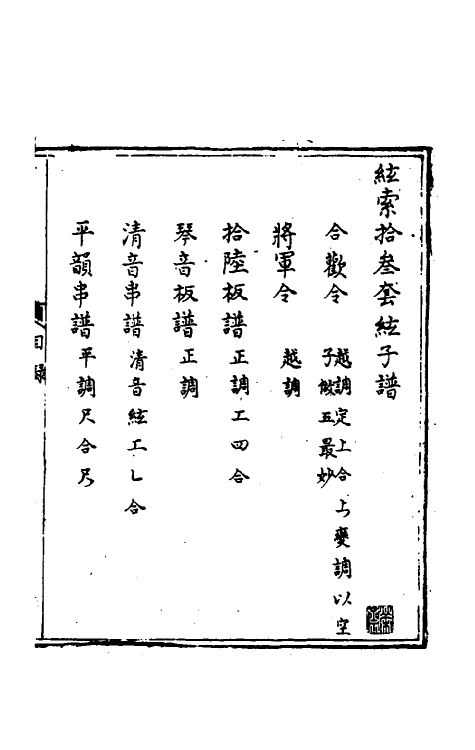 絃索拾叁套絃子譜
合歡令 越調定上合上變調以空
子做五最妙
將軍令 越調
拾陸板譜 正調工四合
琴音板譜 正調
清音串譜 清音絃工乚合
平韻串譜 平調尺合尺
目錄